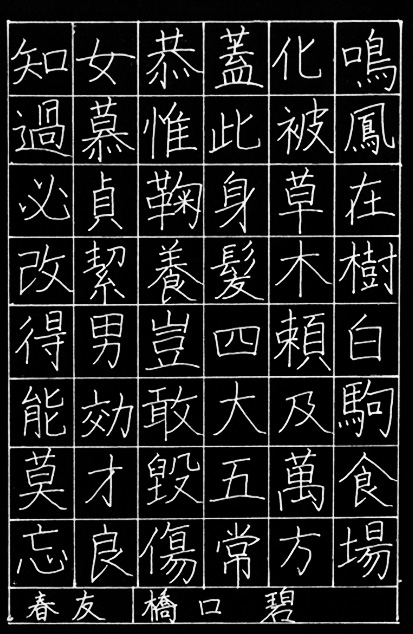 鳴鳳在樹白駒食場
化被草木頼及萬方
蓋此身髮四大五常
恭惟鞠養豈敢毀傷
女慕貞絜男効才良
知過必改得能莫忘
春友 橋口 碧